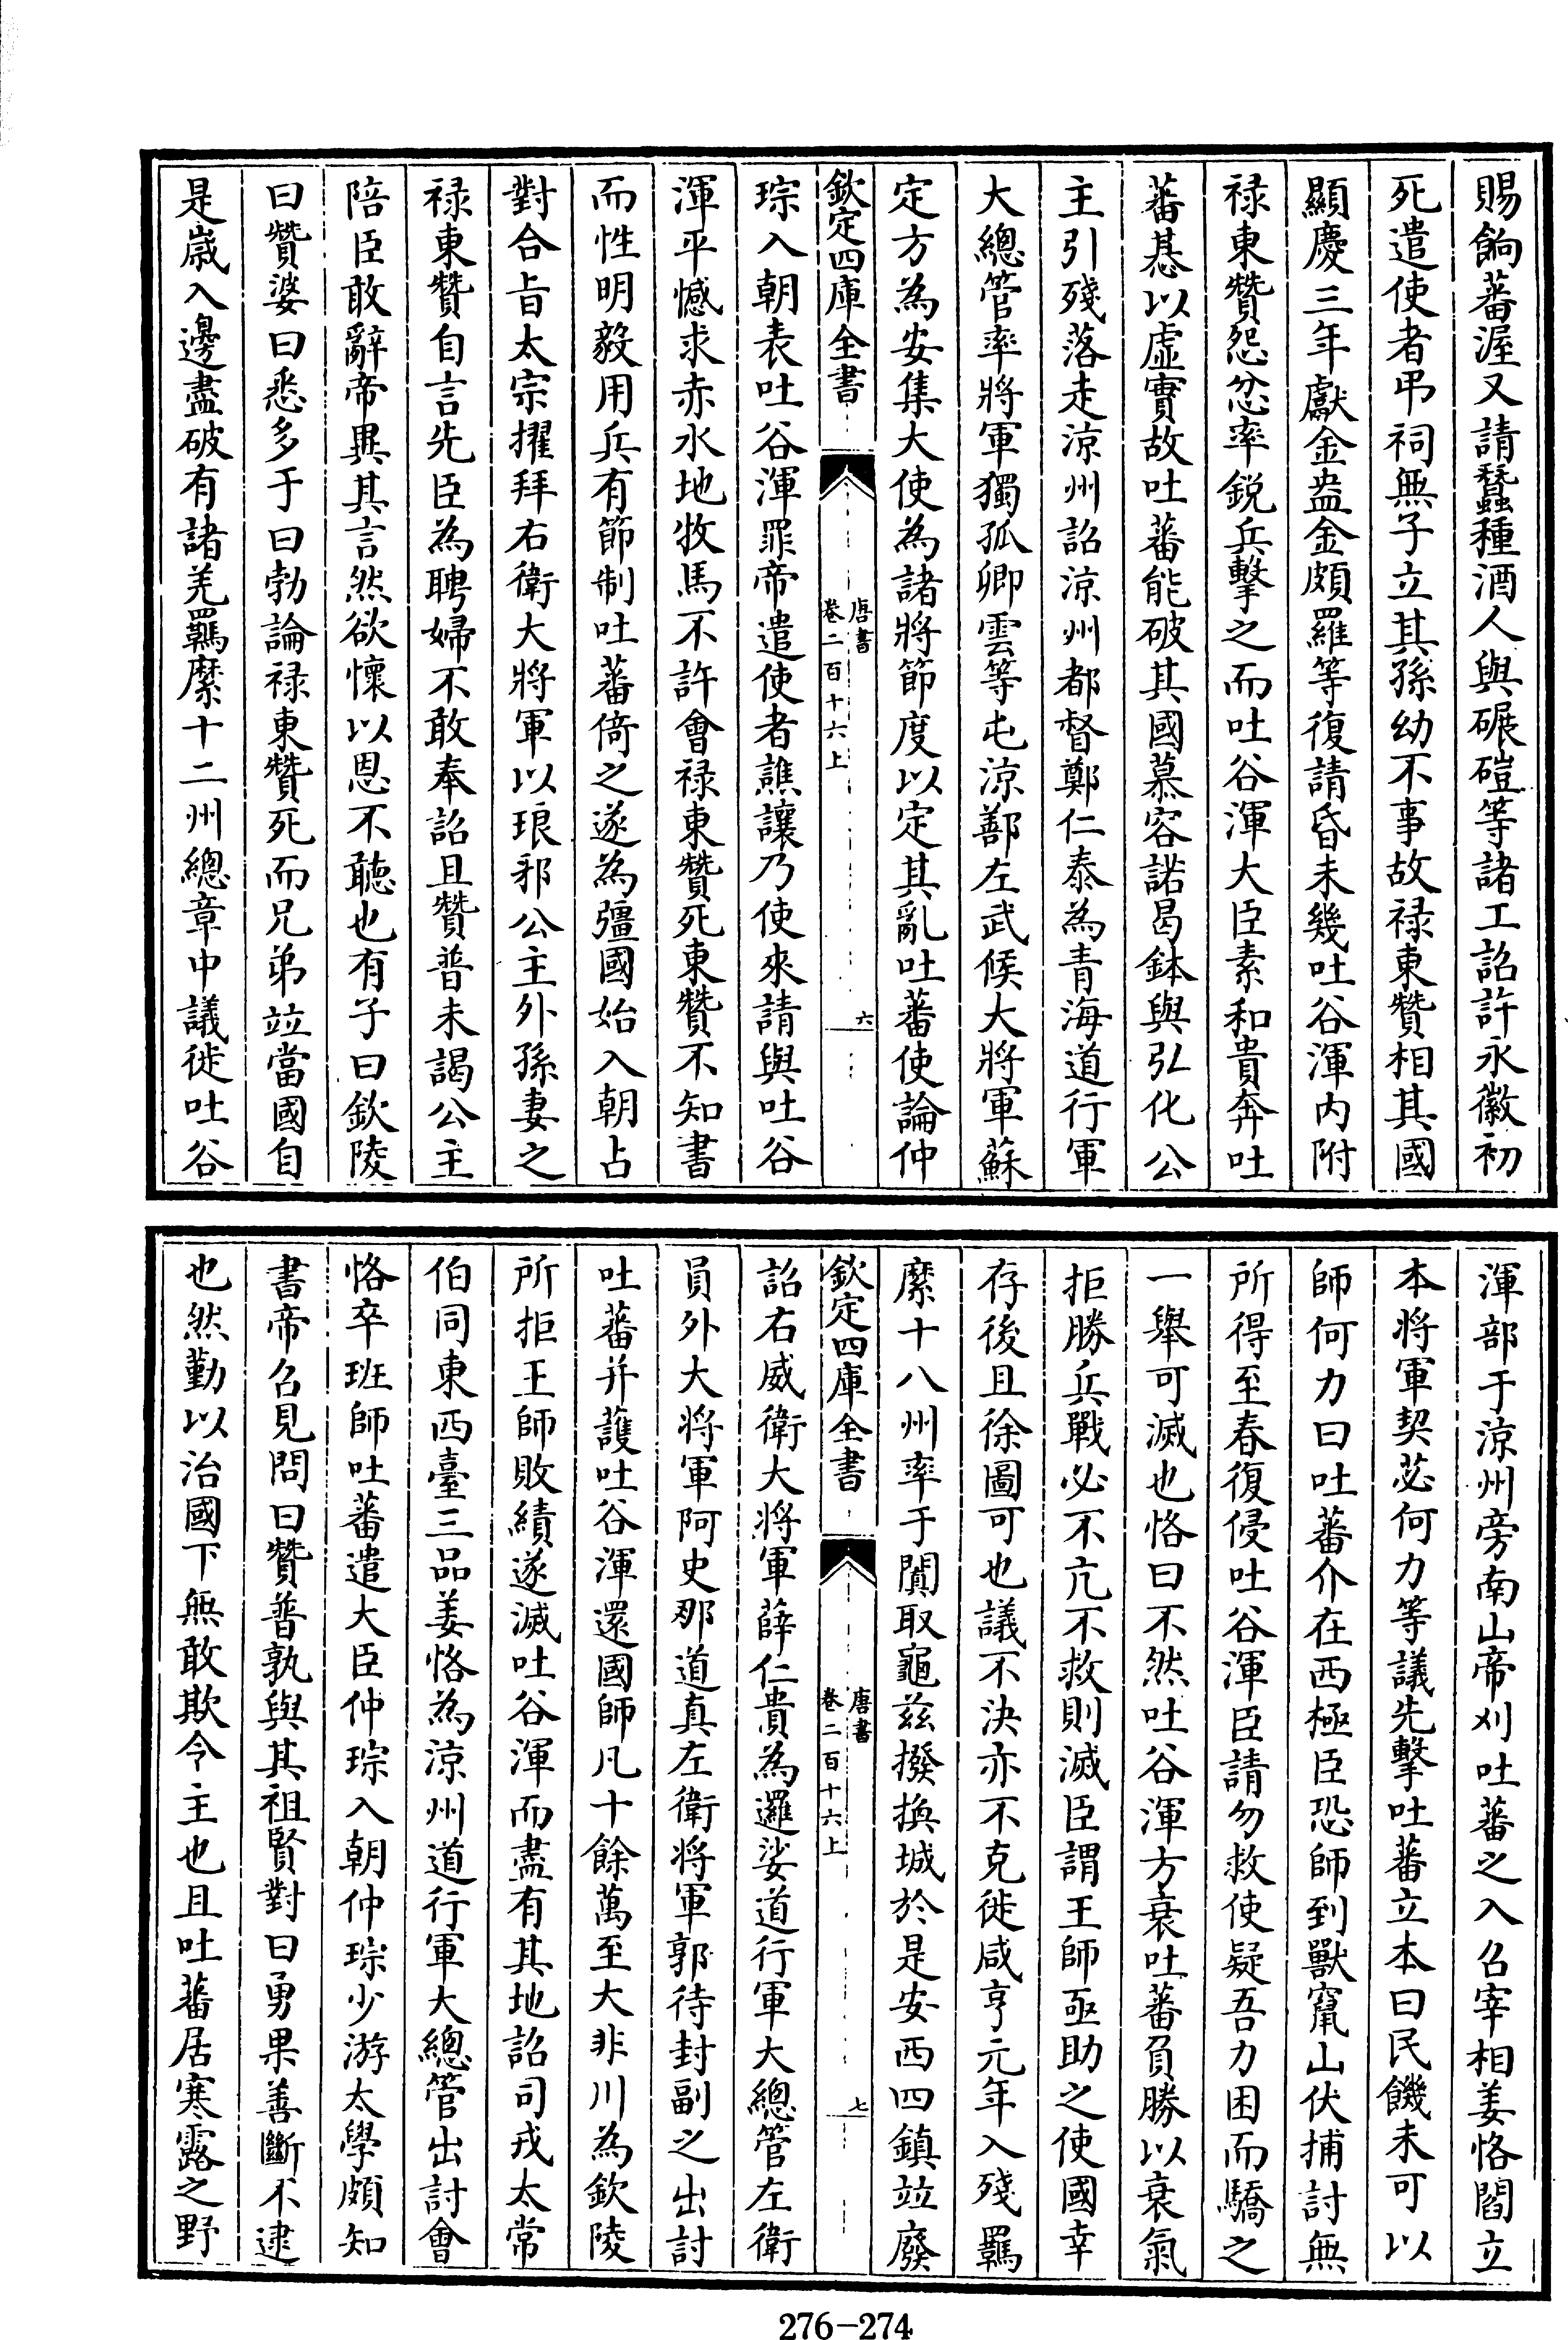 賜餉蕃渥又請蠶種酒人與碾磑等諸工詔許永徽初
死遣使者弔祠無子立其孫幼不事故禄東贊相其國
顯慶三年獻金盎金頗羅等復請昏未幾吐谷渾内附
禄東贊怨忿率鋭兵擊之而吐谷渾大臣素和貴奔吐
蕃惎以虚實故吐蕃能破其國慕容諾曷鉢與弘化公
主引殘落走涼州詔涼州都督鄭仁泰為青海道行軍
大總管率將軍獨孤卿雲等屯涼鄯左武候大將軍蘇
定方為安集大使為諸將節度以定其亂吐蕃使論仲
欽定四庫全書
唐書
卷二百十六上
六
琮入朝表吐谷渾罪帝遣使者譙讓乃使來請與吐谷
渾平憾求赤水地牧馬不許會禄東贊死東贊不知書
而性明毅用兵有節制吐蕃倚之遂為彊國始入朝占
對合旨太宗擢拜右衛大將軍以琅邪公主外孫妻之
禄東贊自言先臣為聘婦不敢奉詔且贊普未謁公主
陪臣敢辭帝異其言然欲懷以恩不聽也有子曰欽陵
曰贊婆曰悉多于曰勃論禄東贊死而兄弟竝當國自
是嵗入邊盡破有諸羌羈縻十二州總章中議徙吐谷
渾部于涼州旁南山帝刈吐蕃之入召宰相姜恪閻立
本将軍契苾何力等議先擊吐蕃立本曰民饑未可以
師何力曰吐蕃介在西極臣恐師到獸竄山伏捕討無
所得至春復侵吐谷渾臣請勿救使疑吾力困而驕之
一舉可滅也恪曰不然吐谷渾方衰吐蕃負勝以衰氣
拒勝兵戰必不亢不救則滅臣謂王師亟助之使國幸
存後且徐圖可也議不決亦不克徙咸亨元年入殘羈
縻十八州率于闐取龜兹撥换城於是安西四鎮竝廢
欽定四庫全書
唐書
卷二百十六上
七
詔右威衛大将軍薛仁貴為邏娑道行軍大總管左衛
員外大将軍阿史那道真左衛将軍郭待封副之出討
吐蕃并護吐谷渾還國師凡十餘萬至大非川為欽陵
所拒王師敗績遂滅吐谷渾而盡有其地詔司戎太常
伯同東西臺三品姜恪為涼州道行軍大總管出討會
恪卒班師吐蕃遣大臣仲琮入朝仲琮少游太學頗知
書帝召見問曰贊普孰與其祖賢對曰勇果善斷不逮
也然勤以治國下無敢欺令主也且吐蕃居寒露之野
276-274